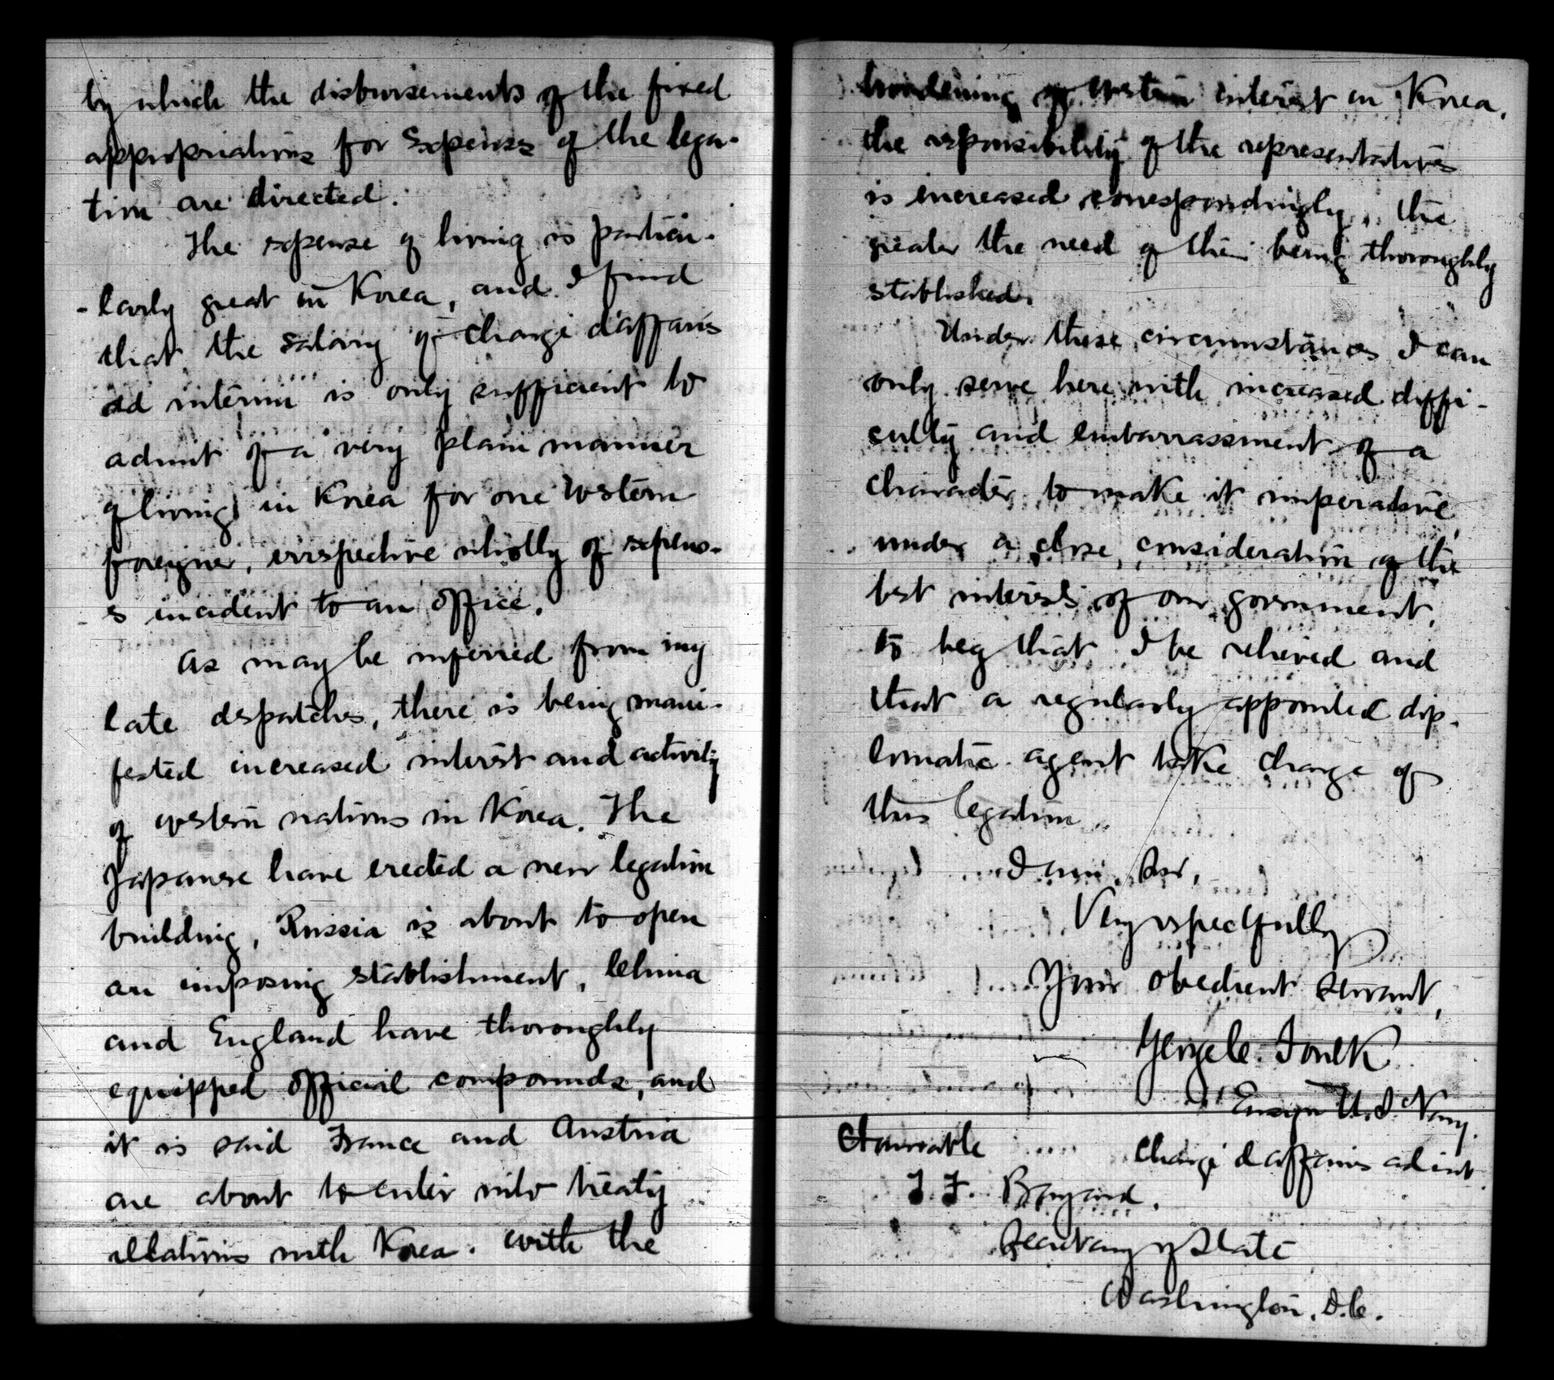 by which the disbursements of the fixed
appropriations for expenses of the lega-
tion are directed.
The expense of living is particu-
-larly great in Korea, and I find
that the salary of chargé d'affaires
ad interim is only sufficient to
admit of a very plain manner
of living in Korea for one western
foreigner, irrespective wholly of expens-
es incident to an office.
As may be inferred from my
late despatches, there is being mani-
fested increased interest and activity
of western nations in Korea. The
Japanese have erected a new legation
building, Russia is about to open
an imposing establishment, China
and England have thoroughly
equipped official compounds, and
it is said France and Austria
are about to enter into treaty
relations with Korea. With the
broadening of western interest in Korea,
the responsibility of the representatives
is increased correspondingly, the
greater the need of their being thoroughly
established.
Under these circumstances I can
only serve here with increased diffi-
culty and embarrassment of a
character to make it imperative,
under a close consideration of the
best interests of our government,
to beg that I be relieved and
that a regularly appointed dip-
lomatic agent take charge of
this legation.
I am, Sir,
Very respectfully
Your obedient servant,
George C. Foulk
Ensign U.S. Navy.
Chargé d'affaires ad int.
Honorable
T. F. Bayard.
Secretary of State
Washington, D.C.